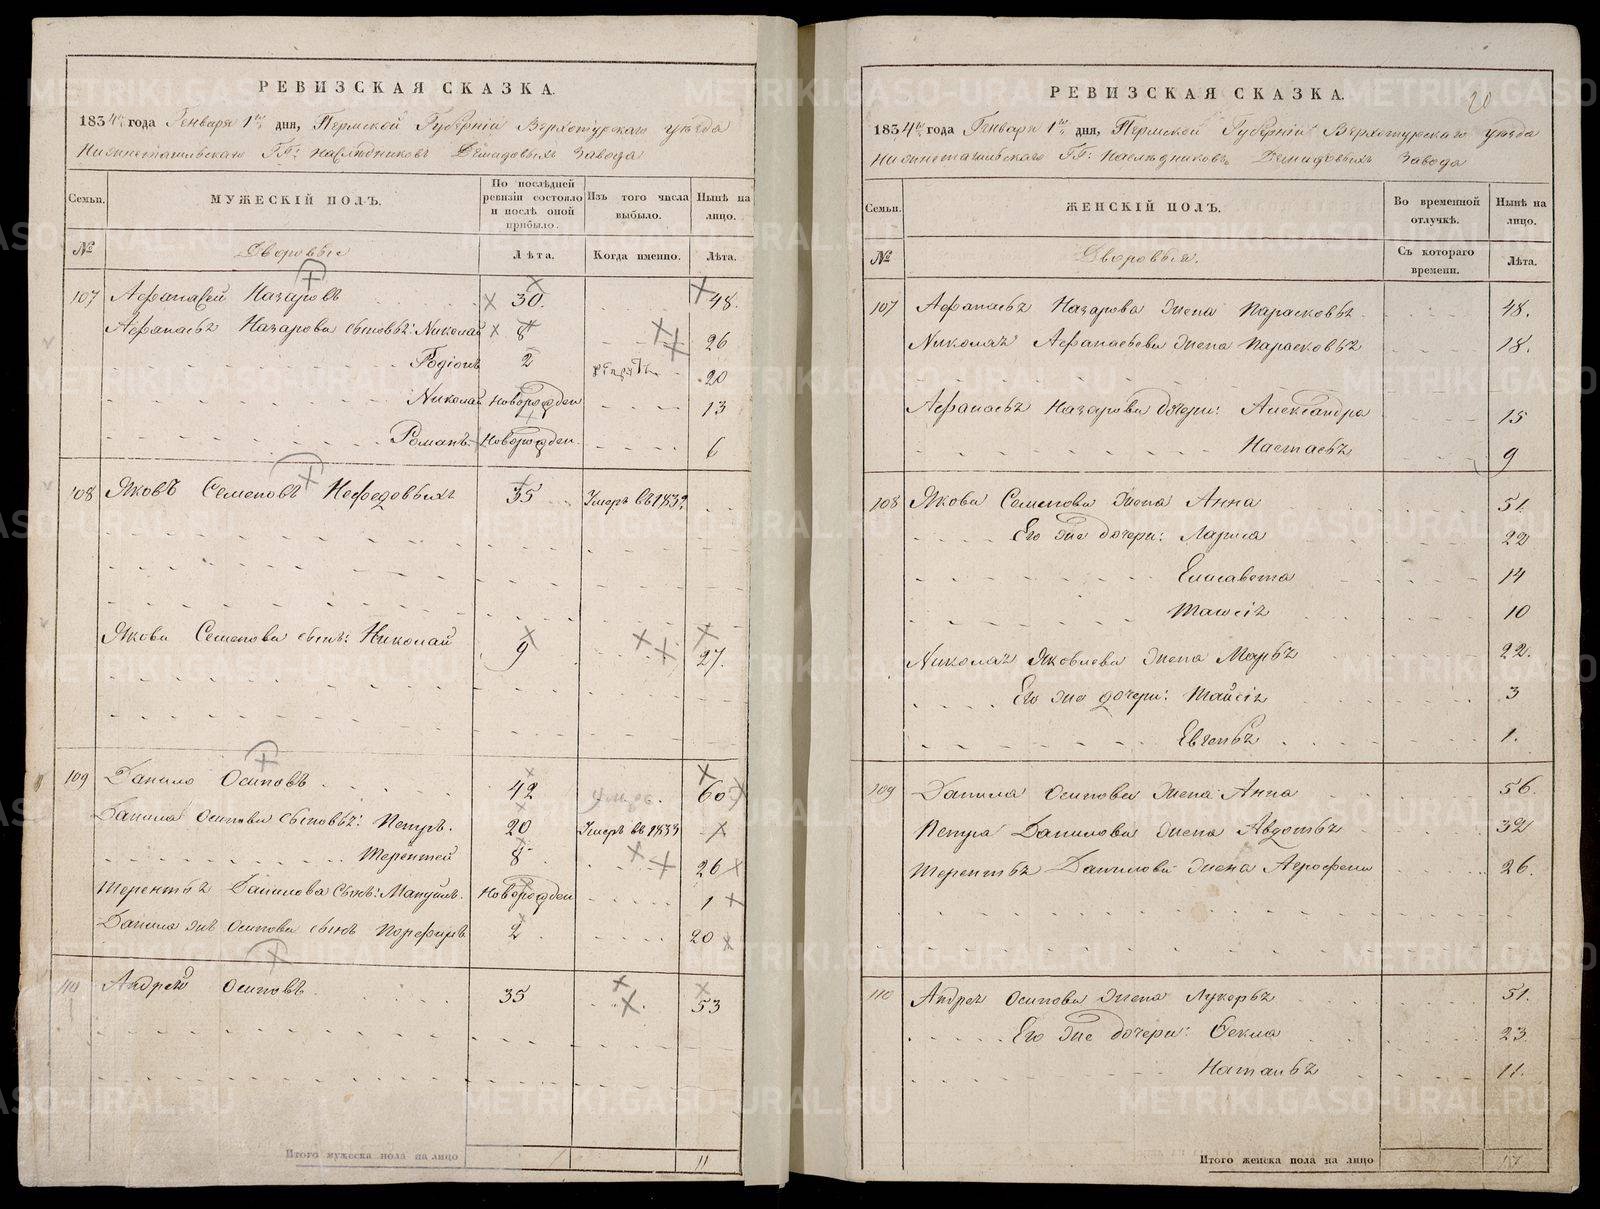 РЕВИЗСКАЯ СКАЗКА.
1834го года Генваря 1го дня, Пермской Губерніи Верхотурскаго уезда
Нижнетагильскаго ГГ: наследниковъ Демидовыхъ Завода
Семьи. МУЖЕСКІЙ ПОЛЪ. По послѣдней ревизіи состояло и послѣ оной прибыло. Изъ того числа выбыло. Нынѣ на лицо.
№ Дворовые Лѣта. Когда именно. Лѣта.
107 Афанасей Назаровъ 30. 48.
Афанасья Назарова сыновья: Николай 8 26
Родіонъ 2 20
Николай Новорожден 13
Романъ. Новорожден. 6
108 Яковъ Семеновъ Нефедовыхъ 35 Умеръ въ 1832
Якова Семенова сынъ: Николай 9 27.
109 Данило Осиповъ 42 умеръ. 60
Данила Осипова сыновья: Петръ. 20 Умеръ въ 1833
Терентей 8 26
Терентья Данилова сынъ: Мануйлъ. Новорожден 1
Данила же Осипова сынъ Порфиръ 2 20
110 Андрей Осиповъ 35 53
Итого мужеска пола на лицо 11
20
РЕВИЗСКАЯ СКАЗКА.
1834го года Генваря 1го дня, Пермской Губерніи Верхотурскаго уезда
Нижнетагильскаго ГГ: Наследниковъ Демидовыхъ Завода
Семьи. ЖЕНСКІЙ ПОЛЪ. Во временной отлучкѣ. Нынѣ на лицо.
№ Дворовыя. Съ котораго времени. Лѣта.
107 Афанасья Назарова жена Парасковья 48.
Николая Афанасьева жена Парасковья 18.
Афанасья Назарова дочери: Александра 15
Настасья 9
108 Якова Семенова жена Анна 51.
Его же дочери: Лариса 22
Елисавета 14
Таисія 10
Николая Яковлева жена Марья 22.
Его же дочери: Тайсія 3
Евгенья 1.
109 Данила Осипова жена Анна 56.
Петра Данилова жена Авдотья 32
Терентья Данилова жена Аграфена 26.
110 Андрея Осипова жена Лукерья 51.
Его же дочери: Фекла 23.
Наталья 11.
Итого женска пола на лицо 17